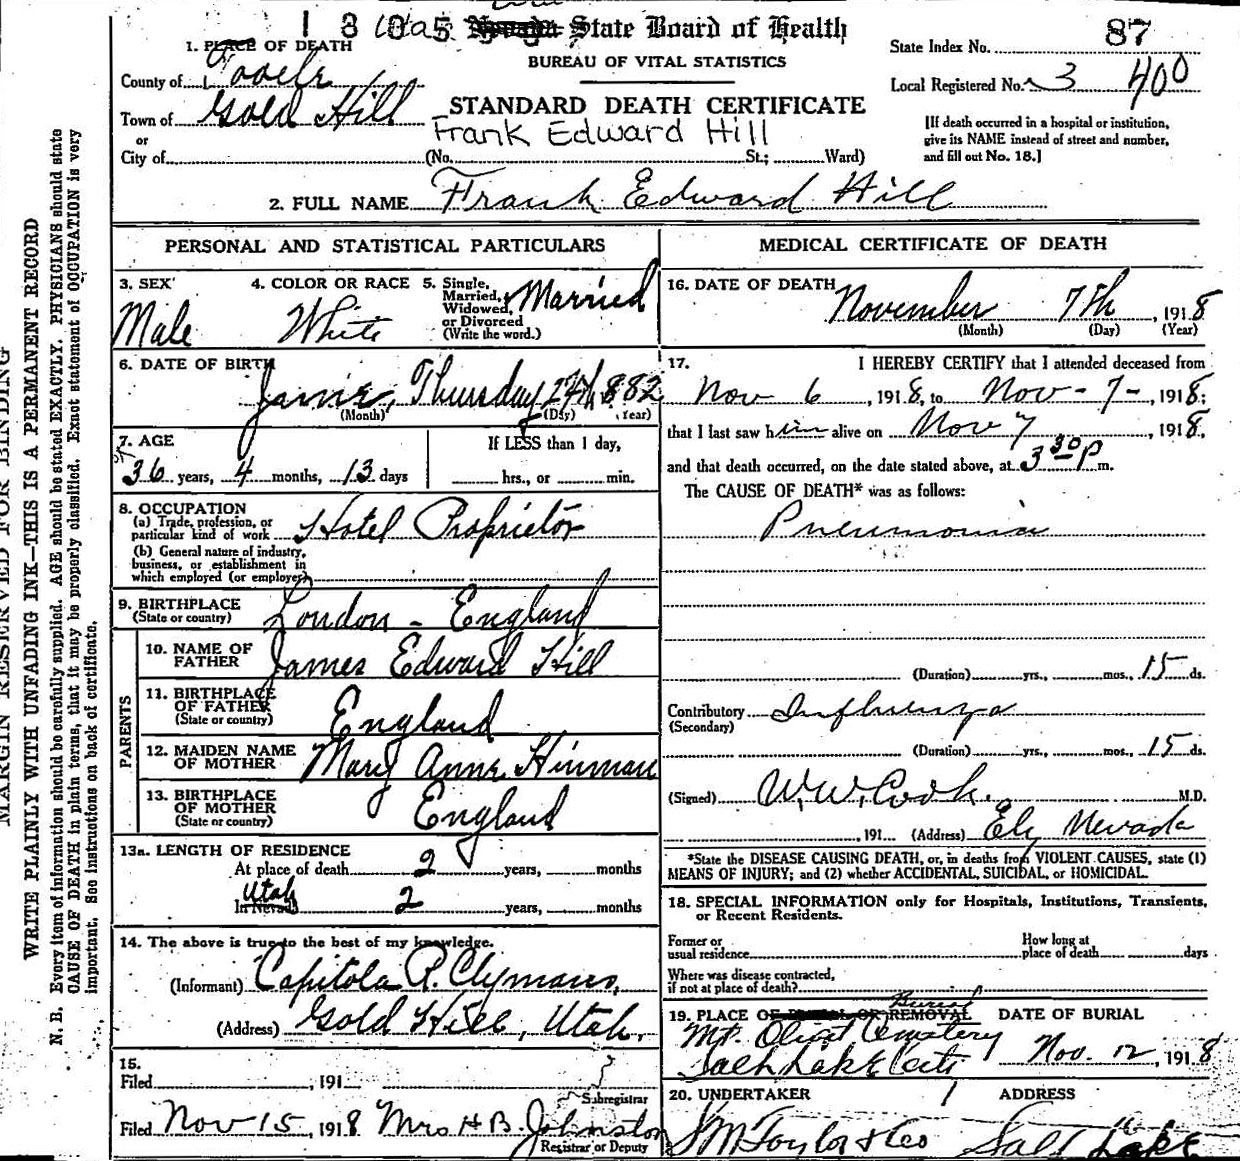 1 3 0 5 Utah Nevada State Board of Health
87
1. PLACE OF DEATH
BUREAU OF VITAL STATISTICS
State Index No.
County of Tooele
Local Registered No. 3 400
STANDARD DEATH CERTIFICATE
Town of Gold Hill
Frank Edward Hill
or
City of (No. St.; Ward)
[If death occurred in a hospital or institution,
give its NAME instead of street and number,
and fill out No. 18.]
2. FULL NAME Frank Edward Hill
PERSONAL AND STATISTICAL PARTICULARS
3. SEX Male
4. COLOR OR RACE White
5. Single,
Married,
Widowed,
or Divorced
(Write the word.)
Married
6. DATE OF BIRTH
June, Thursday 27th 1882
(Month) (Day) (Year)
7. AGE
36 years, 4 months, 13 days
If LESS than 1 day,
hrs., or min.
8. OCCUPATION
(a) Trade, profession, or
particular kind of work Hotel Proprietor
(b) General nature of industry,
business, or establishment in
which employed (or employer)
9. BIRTHPLACE
(State or country) London - England
10. NAME OF
FATHER James Edward Hill
PARENTS
11. BIRTHPLACE
OF FATHER
(State or country) England
12. MAIDEN NAME
OF MOTHER Mary Anne Hinman
13. BIRTHPLACE
OF MOTHER
(State or country) England
13a. LENGTH OF RESIDENCE
At place of death 2 years, months
Utah
In Nevada 2 years, months
14. The above is true to the best of my knowledge.
(Informant) Capitola P. Clymans,
(Address) Gold Hill, Utah,
15.
Filed , 191
Subregistrar
Filed Nov 15, 1918 Mrs H B. Johnston
Registrar or Deputy
MEDICAL CERTIFICATE OF DEATH
16. DATE OF DEATH
November 7th, 1918
(Month) (Day) (Year)
17. I HEREBY CERTIFY that I attended deceased from
Nov 6, 1918, to Nov - 7 -, 1918;
that I last saw him alive on Nov 7, 1918,
and that death occurred, on the date stated above, at 3 30 P m.
The CAUSE OF DEATH* was as follows:
Pneumonia
(Duration) yrs., mos., 15 ds.
Contributory Influenza
(Secondary)
(Duration) yrs., mos., 15 ds.
(Signed) W. W. Cook. M.D.
, 191 (Address) Ely Nevada
*State the DISEASE CAUSING DEATH, or, in deaths from VIOLENT CAUSES, state (1)
MEANS OF INJURY; and (2) whether ACCIDENTAL, SUICIDAL, or HOMICIDAL.
18. SPECIAL INFORMATION only for Hospitals, Institutions, Transients,
or Recent Residents.
Former or
usual residence
How long at
place of death days
Where was disease contracted,
if not at place of death?
Burial
19. PLACE OF BURIAL OR REMOVAL DATE OF BURIAL
Mt. Olivet Cemetery
Salt Lake City Nov. 12, 1918
20. UNDERTAKER ADDRESS
S M Taylor & Co Salt Lake
MARGIN RESERVED FOR BINDING
WRITE PLAINLY WITH UNFADING INK—THIS IS A PERMANENT RECORD
N. B. Every item of information should be carefully supplied. AGE should be stated EXACTLY. PHYSICIANS should state
CAUSE OF DEATH in plain terms, that it may be properly classified. Exact statement of OCCUPATION is very
important. See instructions on back of certificate.